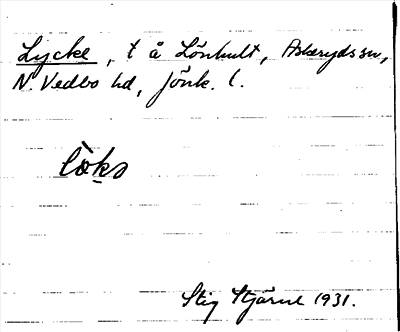 Lycke, t å Lönhult, Askerydssn,
N. Vedbo hd, Jönk. l.
lòks
Stig Stjärne 1931.